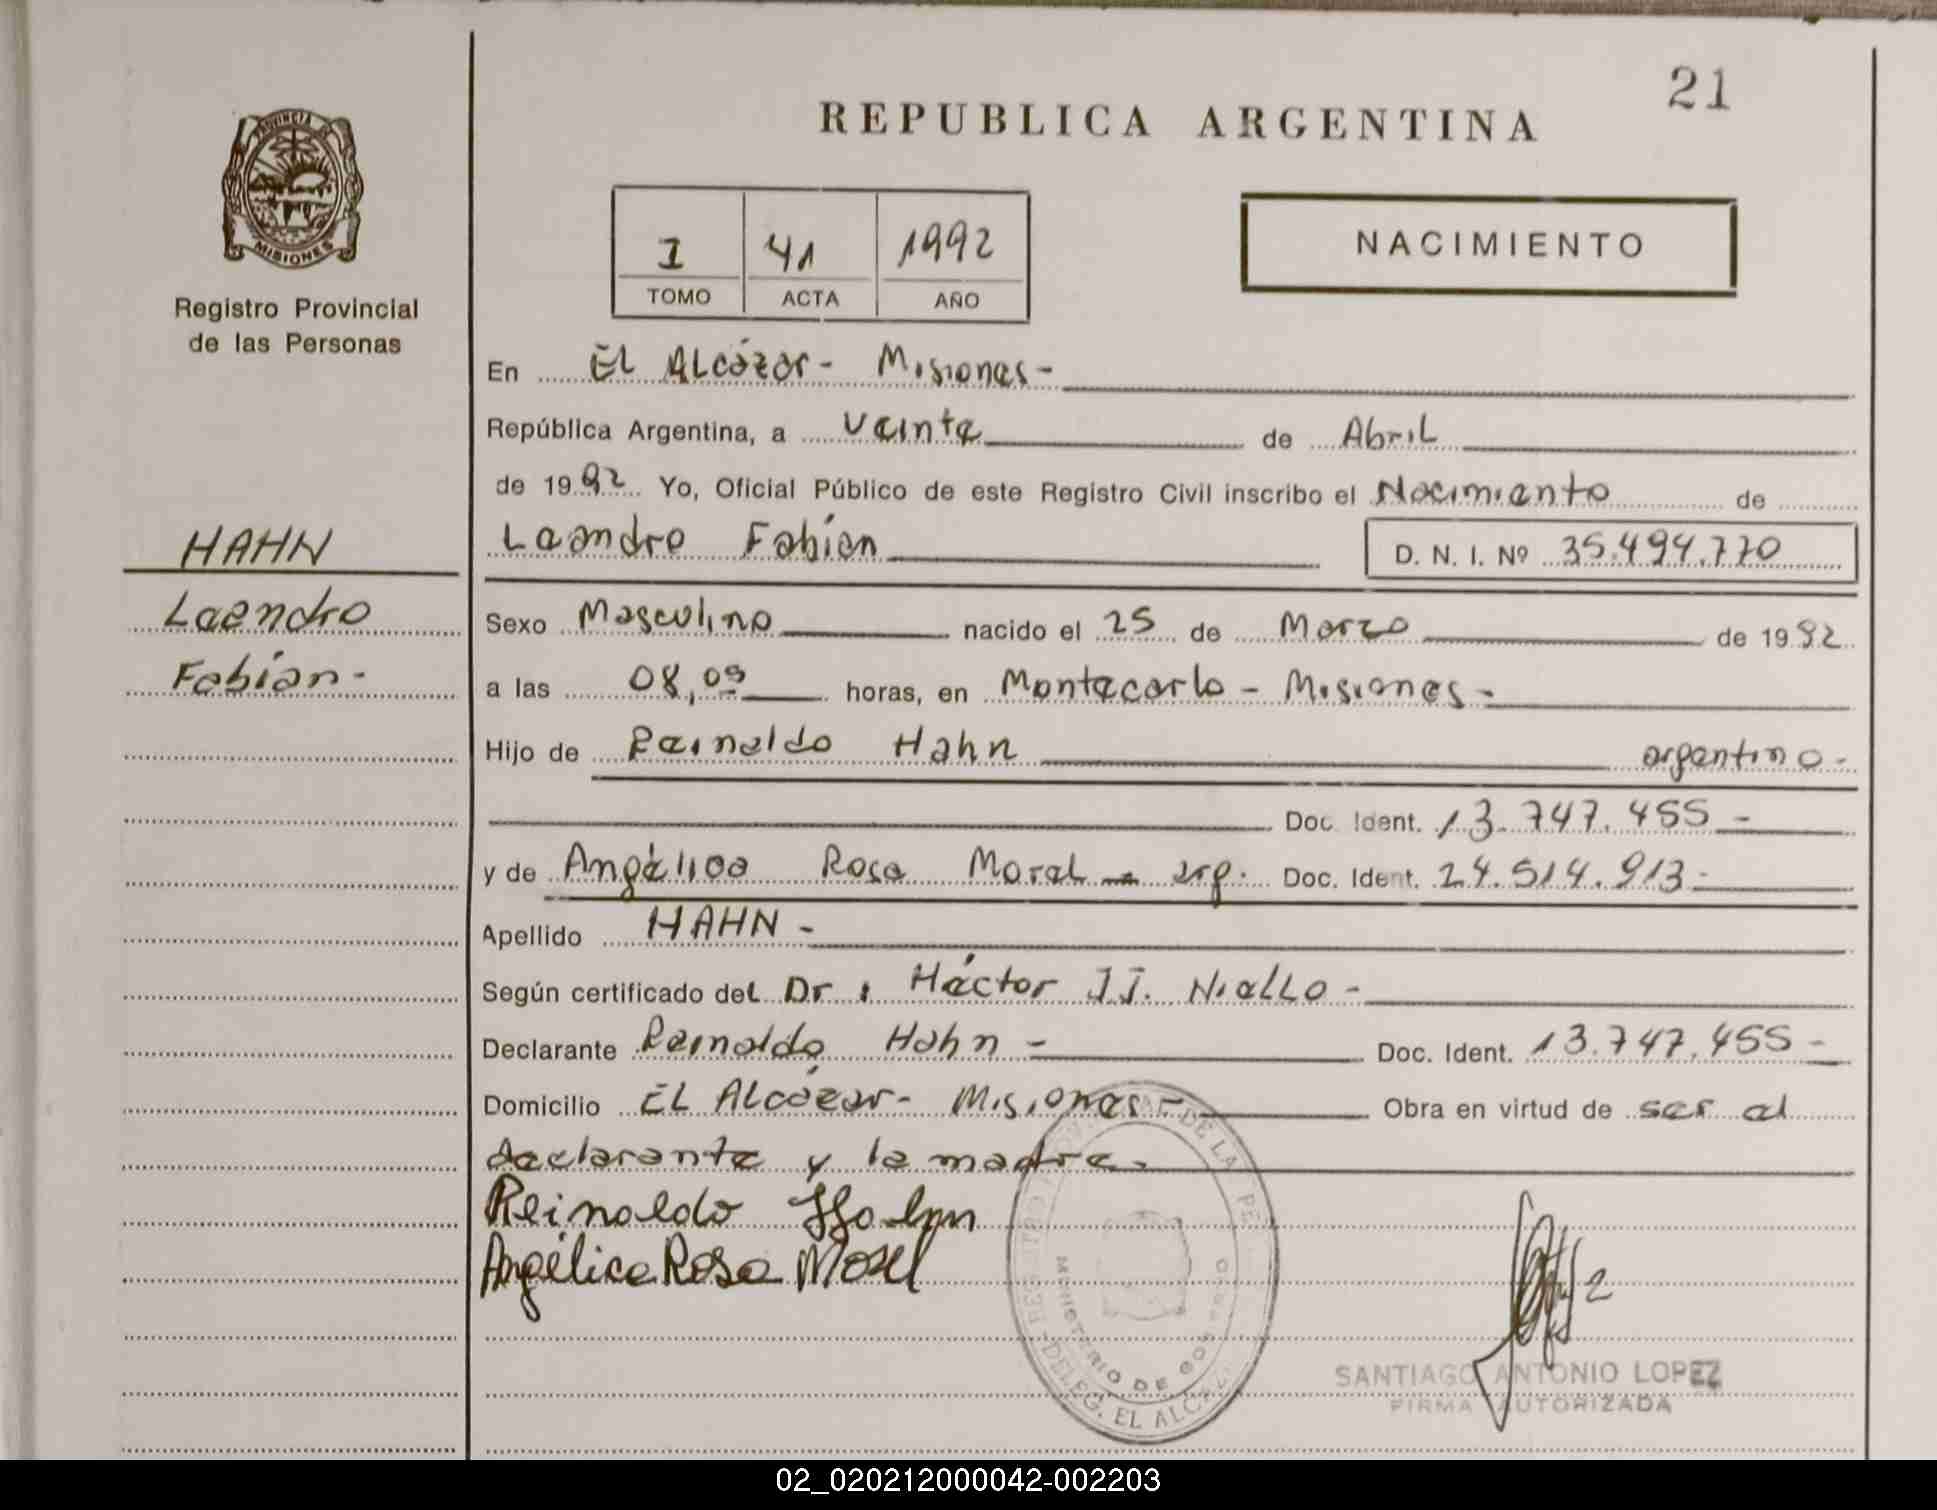 21
REPUBLICA ARGENTINA
PROVINCIA DE
MISIONES
Registro Provincial
de las Personas
I 41 1992
TOMO ACTA AÑO
NACIMIENTO
En El Alcázar - Misiones -
República Argentina, a veinte de Abril
de 1992 Yo, Oficial Público de este Registro Civil inscribo el Nacimiento de
HAHN
Leandro
Fabián -
Leandro Fabián D. N. I. Nº 35.494.770
Sexo Masculino nacido el 25 de Marzo de 1992
a las 08,09 horas, en Montecarlo - Misiones -
Hijo de Reinaldo Hahn argentino -
Doc. Ident. 13.747.455 -
y de Angélica Rosa Morel - arg. Doc. Ident. 24.514.913 -
Apellido HAHN -
Según certificado del Dr. Héctor JJ. Niallo -
Declarante Reinaldo Hahn - Doc. Ident. 13.747.455 -
Domicilio El Alcázar - Misiones - Obra en virtud de ser el
declarante y la madre.
Reinoldo Hahn
Angélica Rosa Morel
DE LA PE
MINISTERIO DE GOBIERNO
DELEG. EL ALCAZ
SANTIAGO ANTONIO LOPEZ
FIRMA AUTORIZADA
02_020212000042-002203